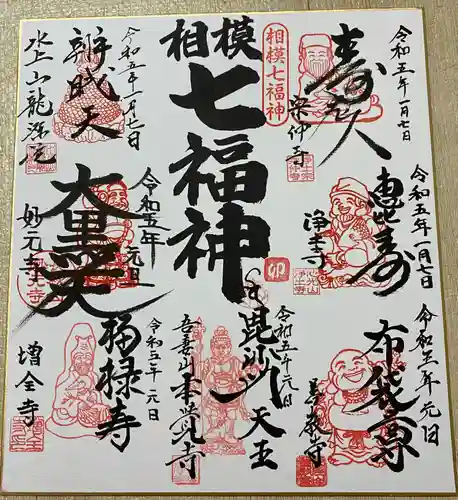 令和五年一月七日
寿老人
宗仲寺
相模七福神
相模
七福神
卯
令和五年一月七日
辨財天
水上山龍源院
令和五年一月七日
恵比寿
浄土寺
令和五年元日
大黒天
妙元寺
令和五年元日
布袋尊
令和五年元日
毘沙門天王
吾妻山本覺寺
令和五年元日
福禄寺
増全寺